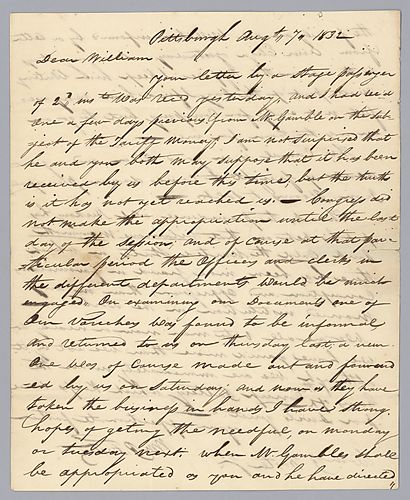 Pittsburgh Augt, 10 1832
Dear William
your letter by a stage passenger
of 2d inst was recd yesterday, and I had recd
one a few days previous from Mr Gamble on the sub
ject of the Tariff Money, I am not surprised that
he and you both may suppose that it has been
received by us before this time, but the truth
is it has not yet reached us. — Congress did
not make the appropriation until the last
day of the session, and of course at that par-
ticular period the Officers and clerks in
the different departments would be much
engaged. On examining our Documents one of
Our Vouchers was found to be informal
and returned to us on thursday last, a new
One was of course made out and forward
ed by us on Saturday; and now as they have
taken the business in hand, I have strong
hopes of geting the needful on monday
or tuesday next. when Mr Gambles shall
be appropriated as you and he have directed